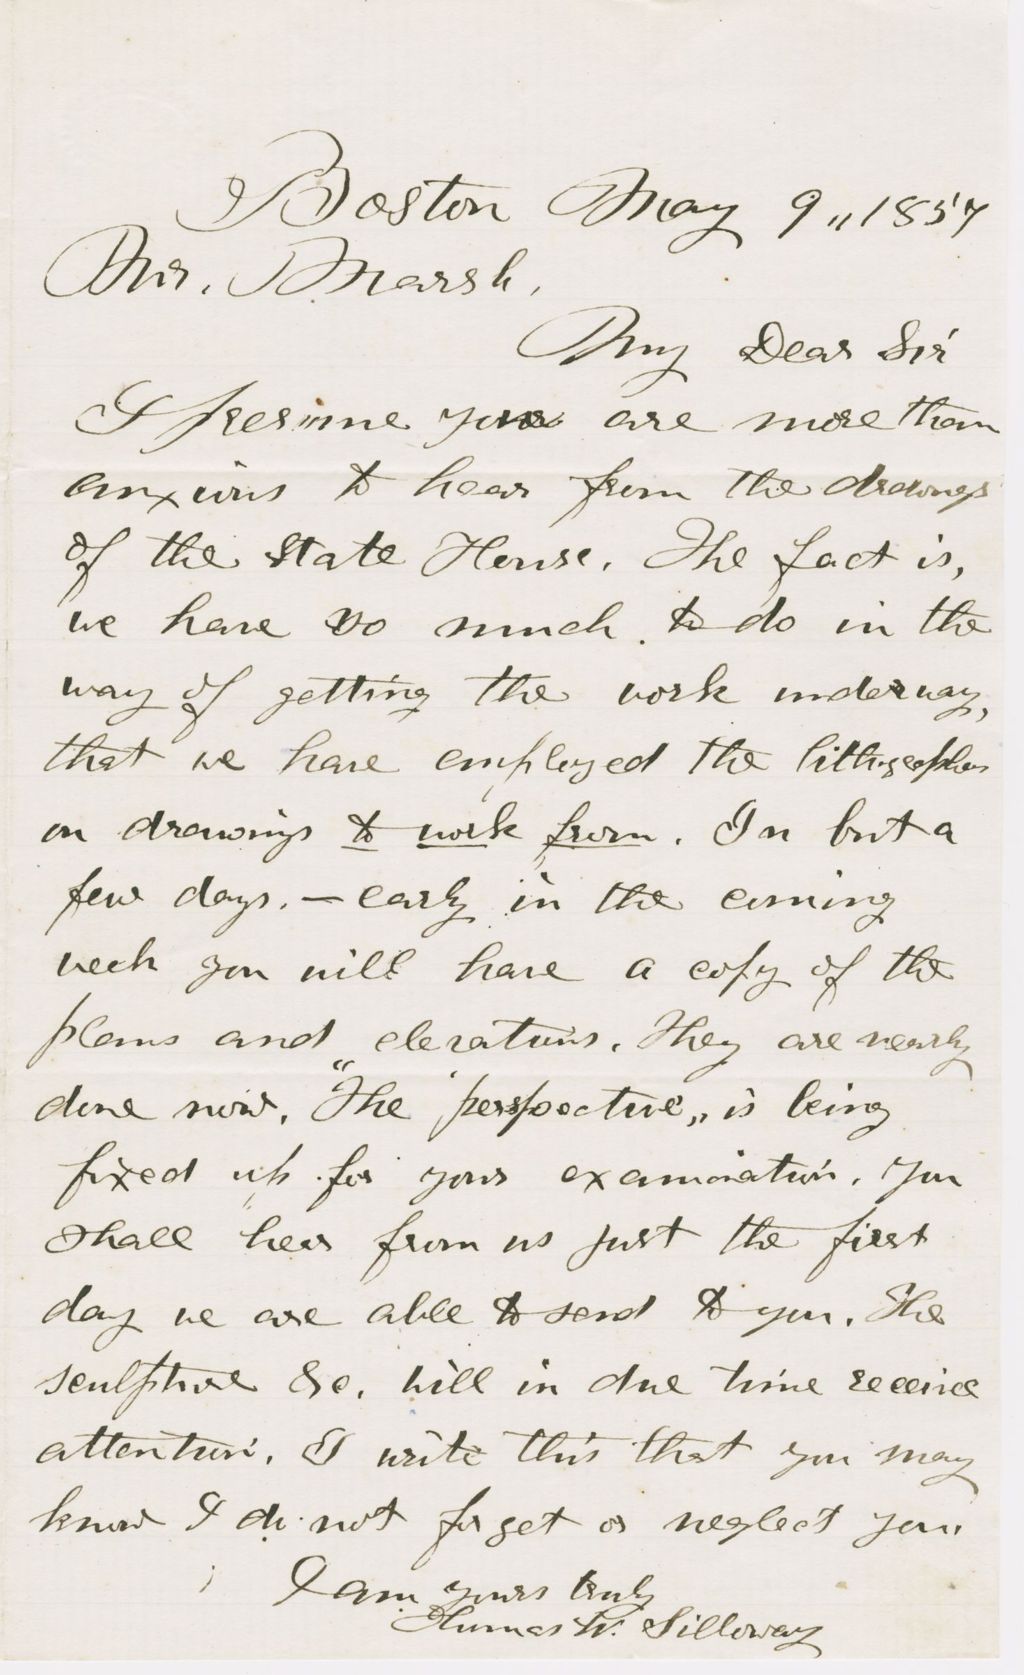 Boston May 9,, 1857
Mr. Marsh,
My Dear Sir
I presume you are more than
anxious to hear from the drawings
of the State House. The fact is,
we have so much to do in the
way of getting the work underway,
that we have employed the lithographer
on drawings to work from. In but a
few days. — early in the coming
week you will have a copy of the
plans and elevations. They are nearly
done now. "The perspective,, is being
fixed up for your examination. You
shall hear from us just the first
day we are able to send to you. The
sculpture &c. will in due time receive
attention. I write this that you may
know I do not forget or neglect you.
I am yours truly
Thomas W. Silloway